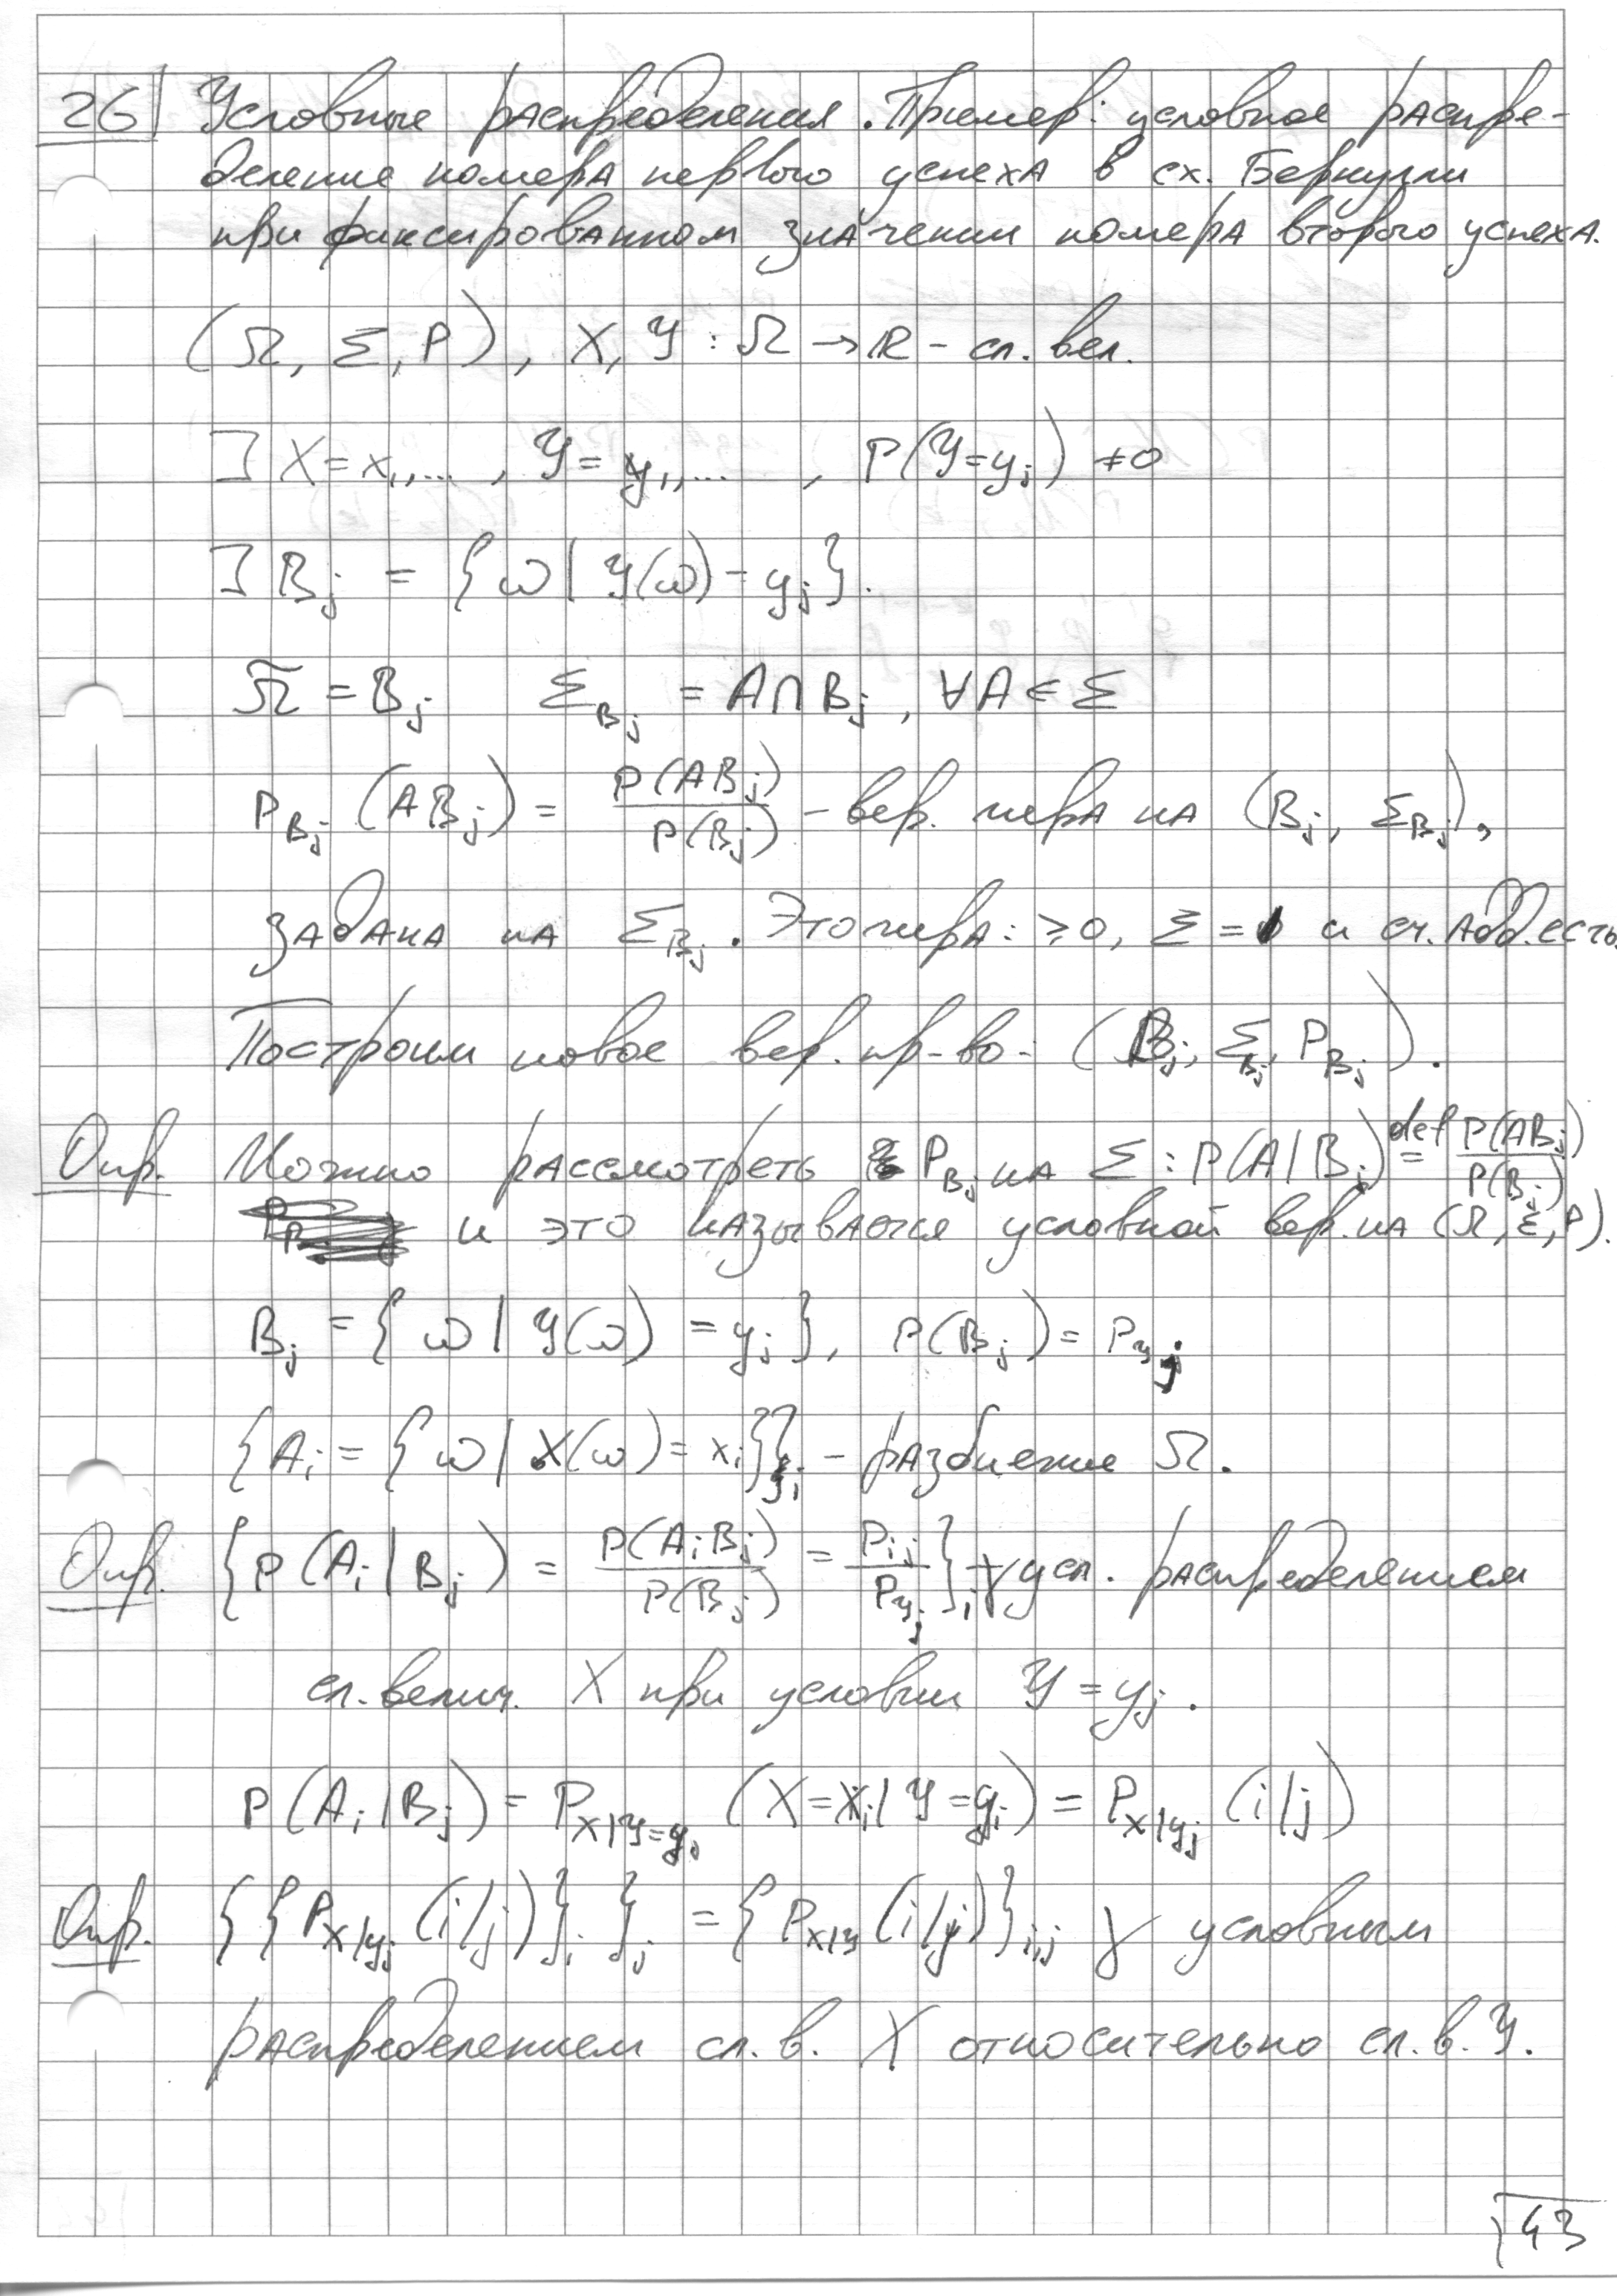 26| Условные распределения. Пример: условное распре-
деление номера первого успеха в сх. Бернулли
при фиксированном значении номера второго успеха.
(Ω, Σ, P), X, Y : Ω → ℝ - сл. вел.
∃ X = x₁,... , Y = y₁,... , P(Y=yⱼ) ≠ 0
∃ Bⱼ = {ω | Y(ω) = yⱼ}.
Ω̃ = Bⱼ Σ_Bⱼ = A∩Bⱼ, ∀A∈Σ
P_Bⱼ (ABⱼ) = P(ABⱼ)/P(Bⱼ) - вер. мера на (Bⱼ, Σ_Bⱼ),
задана на Σ_Bⱼ. Это мера: ≥0, Σ=1 и сч. адд. есть.
Построим новое вер. пр-во: (Bⱼ, Σ_Bⱼ, P_Bⱼ).
Опр. Можно рассмотреть P_Bⱼ на Σ : P(A|Bⱼ) =^def P(ABⱼ)/P(Bⱼ)
и это называется условной вер. на (Ω, Σ, P).
Bⱼ = {ω | Y(ω) = yⱼ}, P(Bⱼ) = P_yⱼ
{Aᵢ = {ω | X(ω) = xᵢ}}ᵢ - разбиение Ω.
Опр. {P(Aᵢ|Bⱼ) = P(AᵢBⱼ)/P(Bⱼ) = Pᵢⱼ/P_yⱼ}ᵢ γ усл. распределением
сл. велич. X при условии Y = yⱼ.
P(Aᵢ|Bⱼ) = P_X|Y=yⱼ (X=xᵢ | Y=yⱼ) = P_X|yⱼ (i|j)
Опр. {{P_X|yⱼ (i|j)}ᵢ}ⱼ = {P_X|Y (i|j)}ᵢ,ⱼ γ условным
распределением сл. в. X относительно сл. в. Y.
43